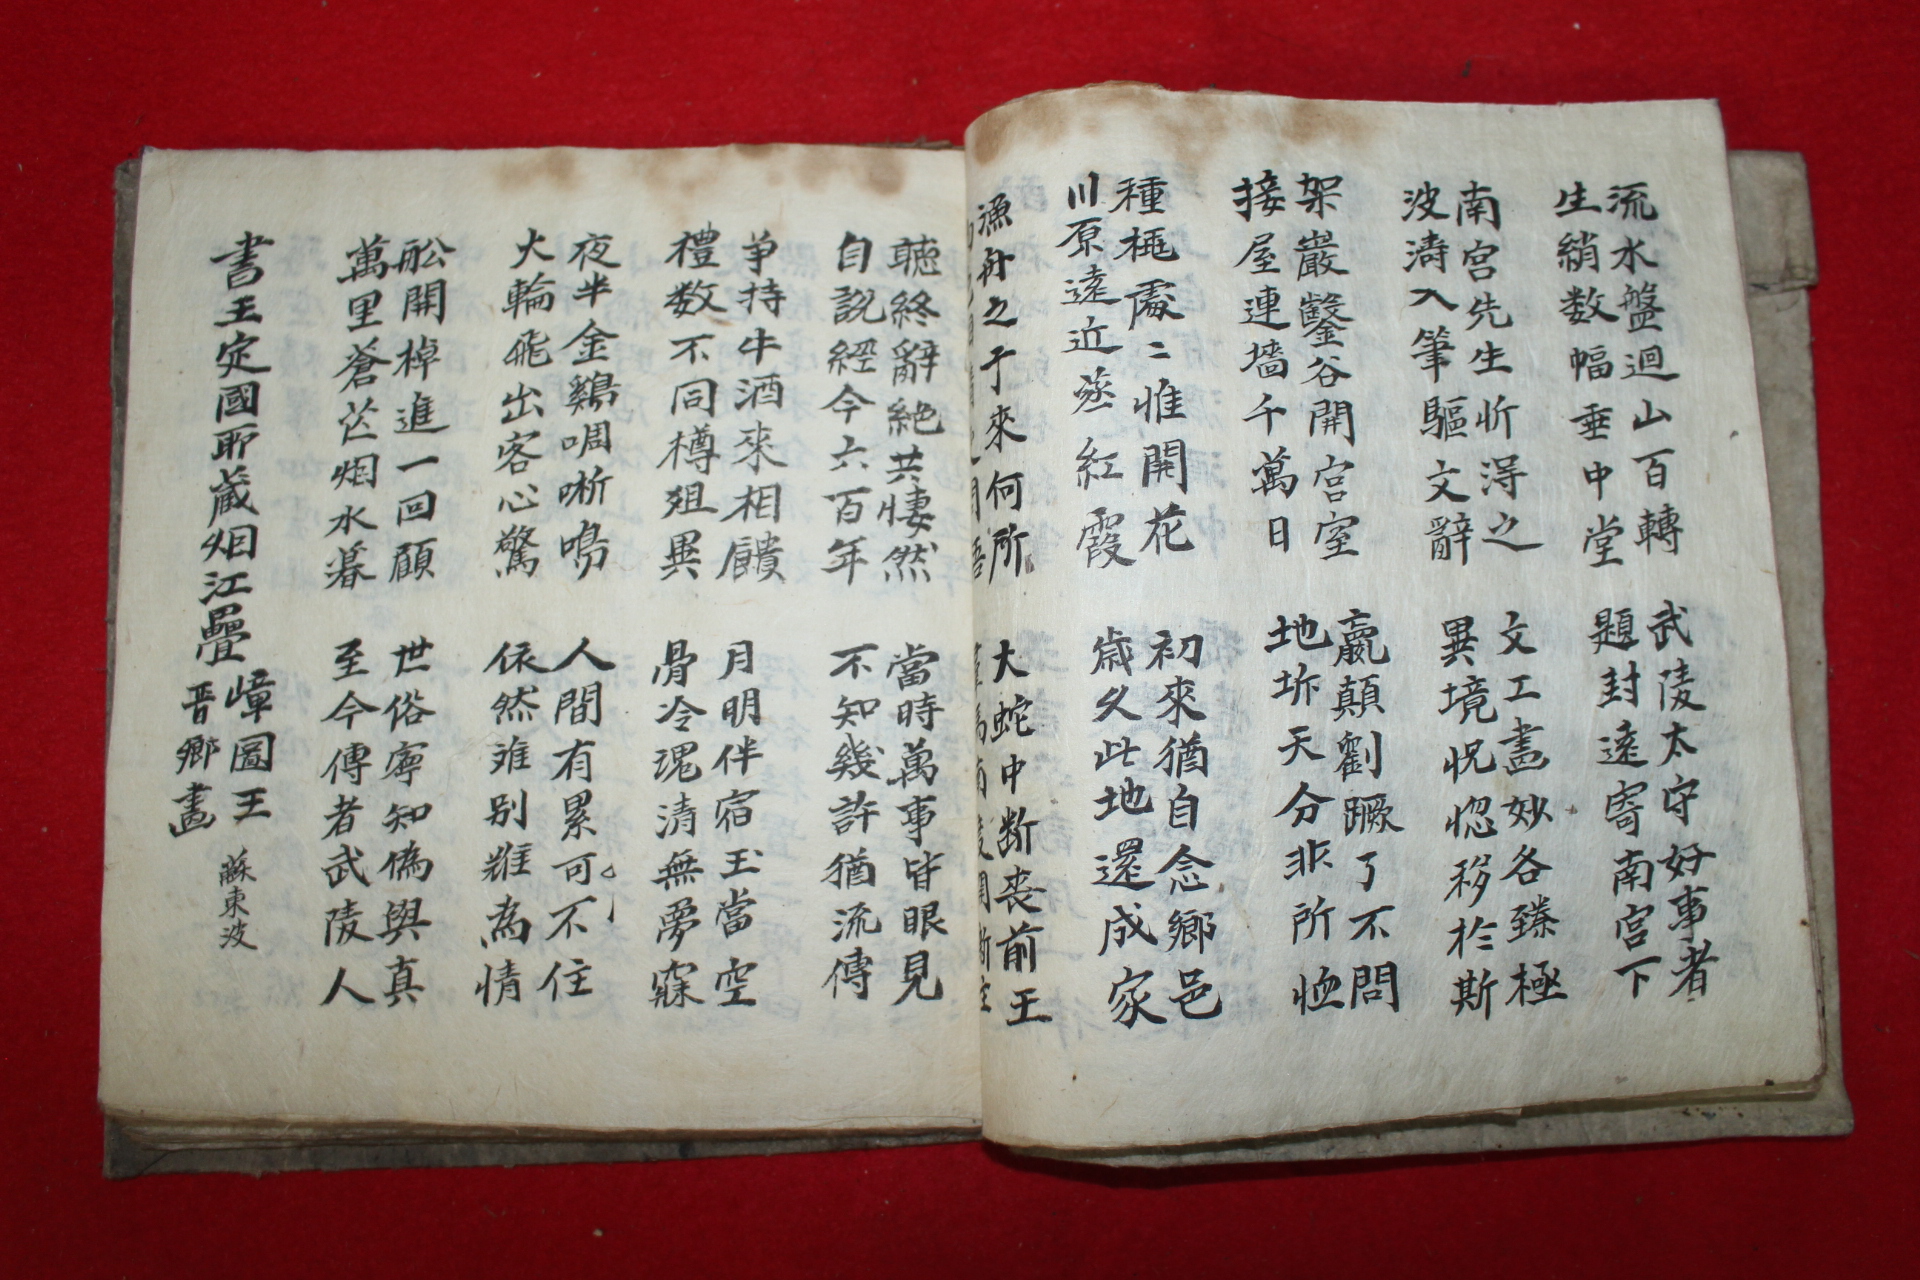 流水盤迴山百轉
生綃数幅垂中堂
武陵太守好事者
題封遠寄南宮下
南宮先生忻淂之
波濤入筆驅文辭
文工畫妙各臻極
異境怳惚移於斯
架巖鑿谷開宮室
接屋連墻千萬日
嬴顛劉蹶了不問
地坼天分非所恤
種桃處〻惟開花
川原遠近蒸紅霞
初來猶自念鄉邑
歲久此地還成家
漁舟之子來何所
大蛇中断喪前王
聽終辭絕共悽然
自說經今六百年
當時萬事皆眼見
不知幾許猶流傳
爭持牛酒來相饋
禮数不同樽俎異
月明伴宿玉當空
骨冷魂清無夢寐
夜半金鷄啁哳鳴
火輪飛出客心驚
人間有累可不住
依然離别難為情
舩開棹進一回顧
萬里蒼茫烟水暮
世俗寧知僞與真
至今傳者武陵人
書王定國所蔵烟江疊
嶂圖王
晋卿畫
蘇東波